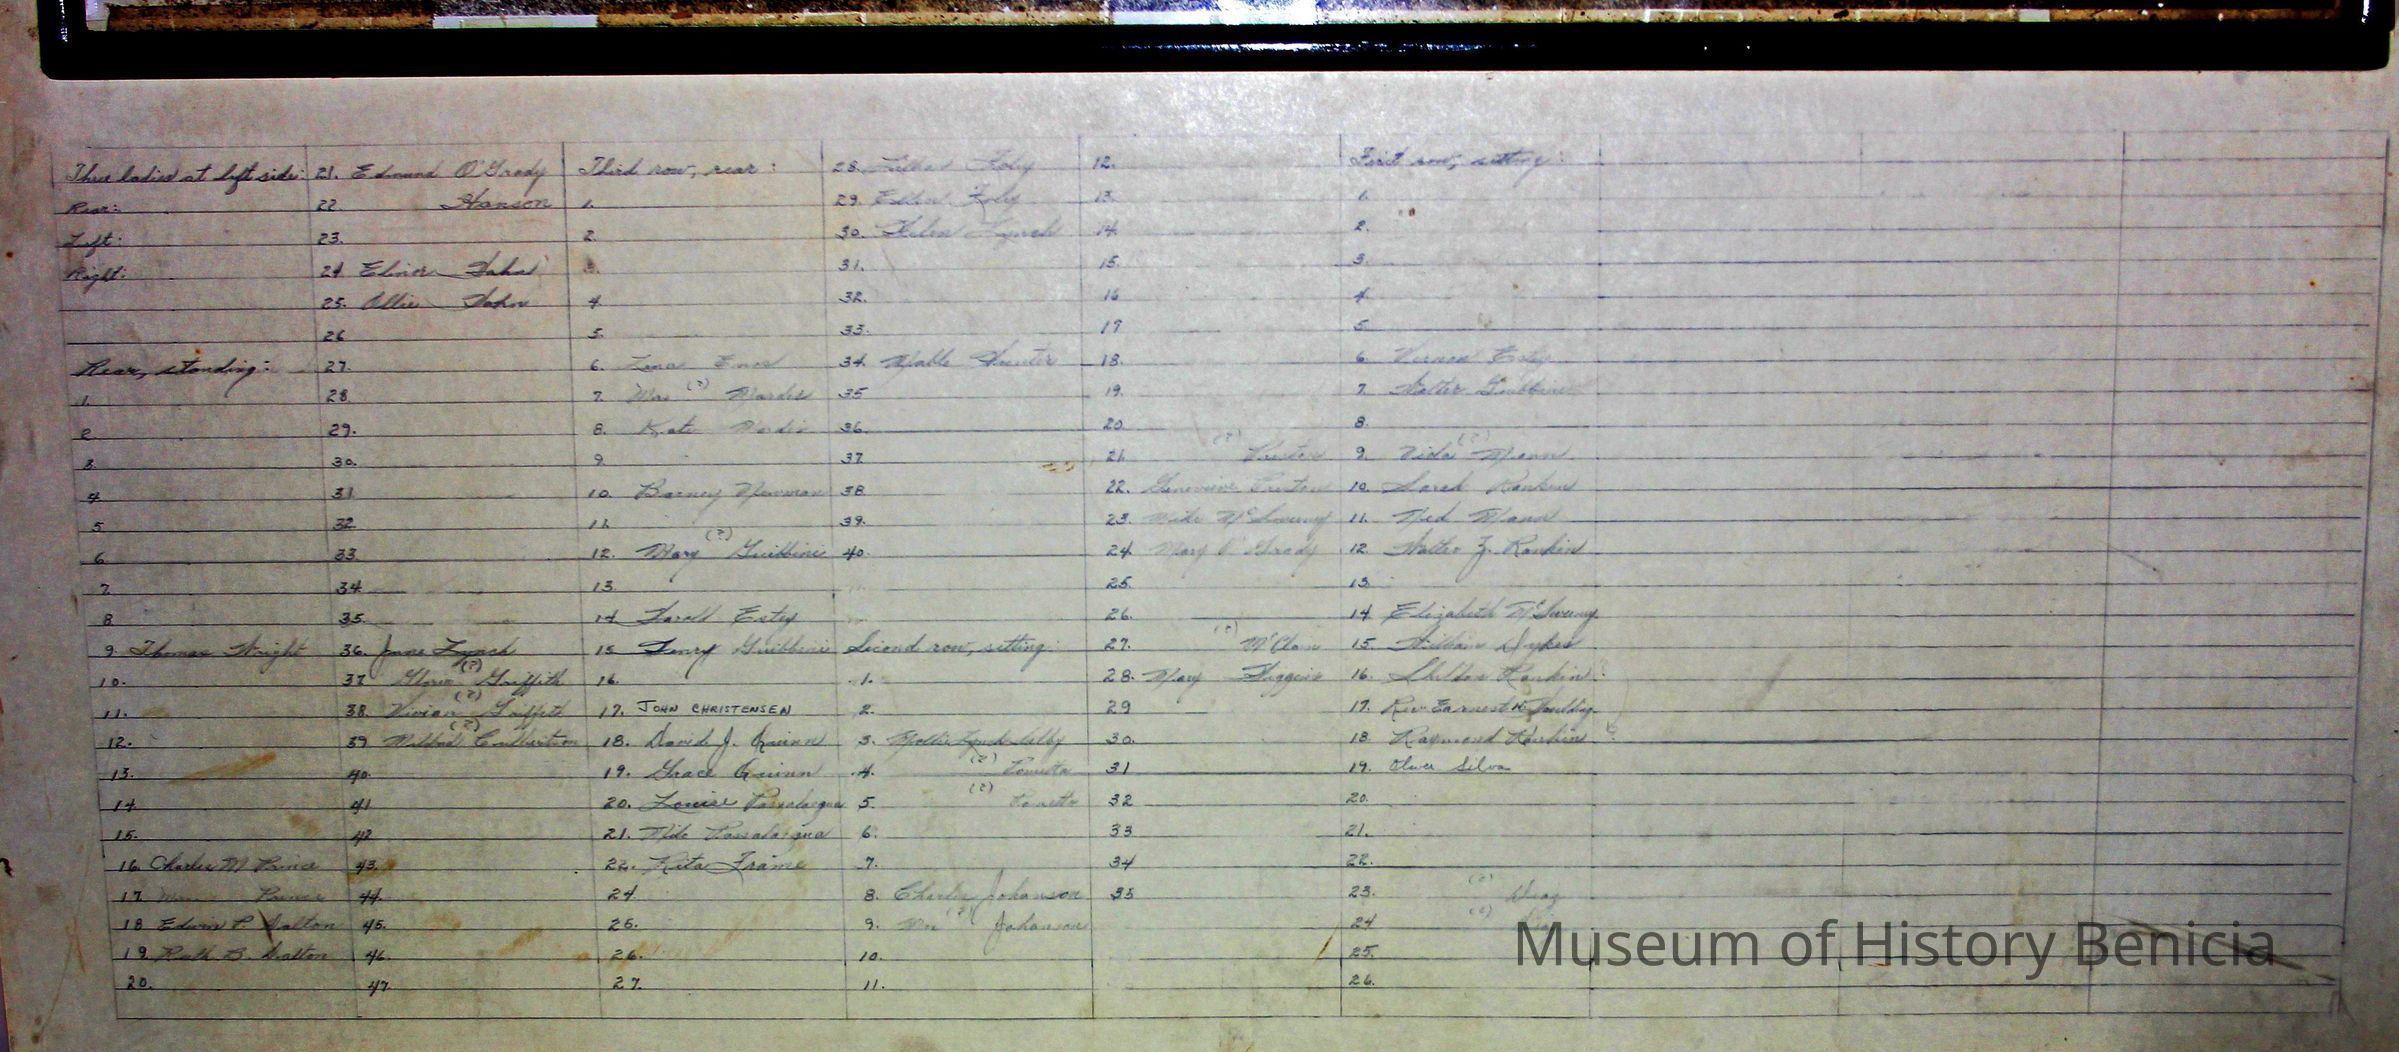 Three ladies at left side:
Rear:
Left:
Right:
Rear, standing:
1.
2.
3.
4
5
6
7
8
9. Thomas Wright
10.
11.
12.
13.
14
15.
16. Charles M Prince
17. Prince
18 Edwin P. Dalton
19. Ruth B. Dalton
20.
21. Edmund O'Grady
22. Hanson
23.
24 Elmer Hahn
25. Ollie Hahn
26
27.
28
29.
30.
31
32
33.
34
35.
36. Jane Lynch
37 (?) Griffith
38. Vivian (?) Griffith
39 Mildred (?) Culbertson
40.
41
42
43.
44.
45.
46.
47
Third row, rear:
1.
2.
3.
4
5.
6. Enos
7. Mrs (?) Mardis
8. Kate Mardis
9.
10. Barney Newman
11.
12. Mary (?) Guibbini
13
14 Sarell Estey
15 Henry Guibbini
16.
17. JOHN CHRISTENSEN
18. David J. Quinn
19. Grace Quinn
20. Louise Passalacqua
21. Passalacqua
22. Rita Frame
24
25.
26.
27.
28. Foley
29. Esther Foley
30. Helen Lynch
31.
32.
33.
34. Mable Hunter
35
36.
37
38
39.
40.
Second row, sitting:
1.
2.
3. Mollie Lynch Selby
4. (?)
5. (?)
6.
7.
8. Charlie Johanson
9. Mrs (?) Johanson
10.
11.
12.
13.
14.
15.
16
17
18.
19.
20
21. (?)
22. Genevieve
23. Mike McSweeny
24 Mary O'Grady
25.
26.
27. (?) McClain
28. Mary Higgins
29
30.
31
32
33
34
35
First row, sitting:
1.
2.
3.
4.
5.
6. Vernon Estey
7. Walter Guibbini
8.
9. Vida (?) Mann
10. Sarah Rankin
11. Ned Mann
12. Walter J. Rankin
13.
14. Elizabeth McSweeny
15. William Dykes
16. Sheldon Rankin
17. Rev. Earnest
18 Raymond Rankin
19. Oliver Silva
20.
21.
22.
23. (?)
24 (?)
25.
26.
Museum of History Benicia